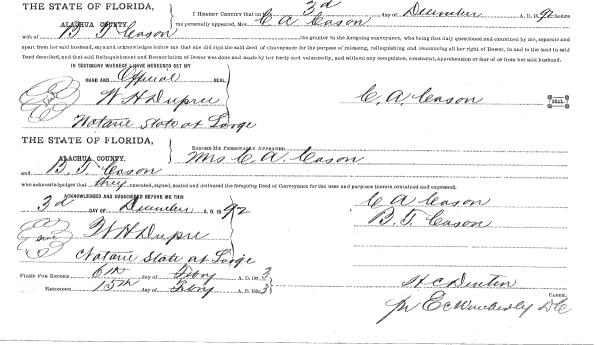 THE STATE OF FLORIDA,
ALACHUA COUNTY.
I HEREBY CERTIFY That on 3d day of December A. D. 1892 before
me personally appeared, Mrs. C A Cason
wife of B T Cason the grantor in the foregoing conveyance, who being first duly questioned and examined by me, separate and
apart from her said husband, say and acknowledges before me that she did sign the said deed of Conveyance for the purpose of releasing, relinquishing and renouncing all her right of Dower, in and to the land in said
Deed described, and that said Relinquishment and Renunciation of Dower was done and made by her freely and voluntarily, and without any compulsion, constraint, apprehension or fear of or from her said husband.
IN TESTIMONY WHEREOF I HAVE HEREUNTO SET MY
HAND AND Official SEAL
Seal
W H Dupree
Notarie State at Large
C. A. Cason SEAL
THE STATE OF FLORIDA,
ALACHUA COUNTY.
BEFORE ME PERSONALLY APPEARED
Mrs C. A. Cason
and B. T. Cason
who acknowledges that they executed, signed, sealed and delivered the foregoing Deed of Conveyance for the uses and purposes therein contained and expressed.
ACKNOWLEDGED AND SUBSCRIBED BEFORE ME THIS
3d DAY OF December A. D. 1892
C A Cason
B. T. Cason
Seal
W H Dupre
Notarie State at Large
FILED FOR RECORD 6th day of Feby A. D. 1893
RECORDED 15th day of Feby A. D. 1893
H C Denton
CLERK.
pr E C Wimberly D C